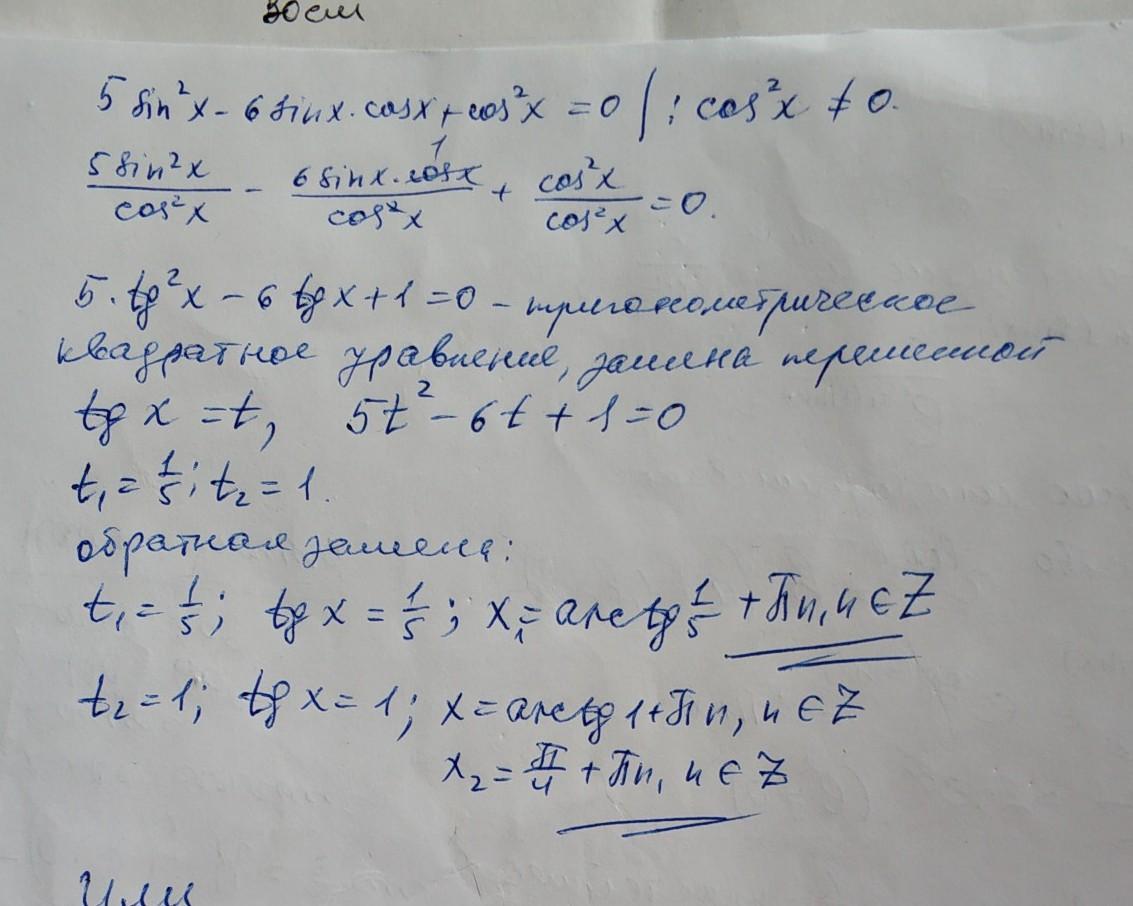 30см
5 sin²x - 6 sinx · cosx + cos²x = 0 | : cos²x ≠ 0.
5 sin²x / cos²x - 6 sinx · cosx 1 / cos²x + cos²x / cos²x = 0.
5 · tg²x - 6 tgx + 1 = 0 - тригонометрическое
квадратное уравнение, замена переменной
tg x = t, 5t² - 6t + 1 = 0
t₁ = 1/5; t₂ = 1.
обратная замена:
t₁ = 1/5; tg x = 1/5; x₁ = arctg 1/5 + πn, n ∈ Z
t₂ = 1; tg x = 1; x = arctg 1 + πn, n ∈ Z
x₂ = π/4 + πn, n ∈ Z
Или